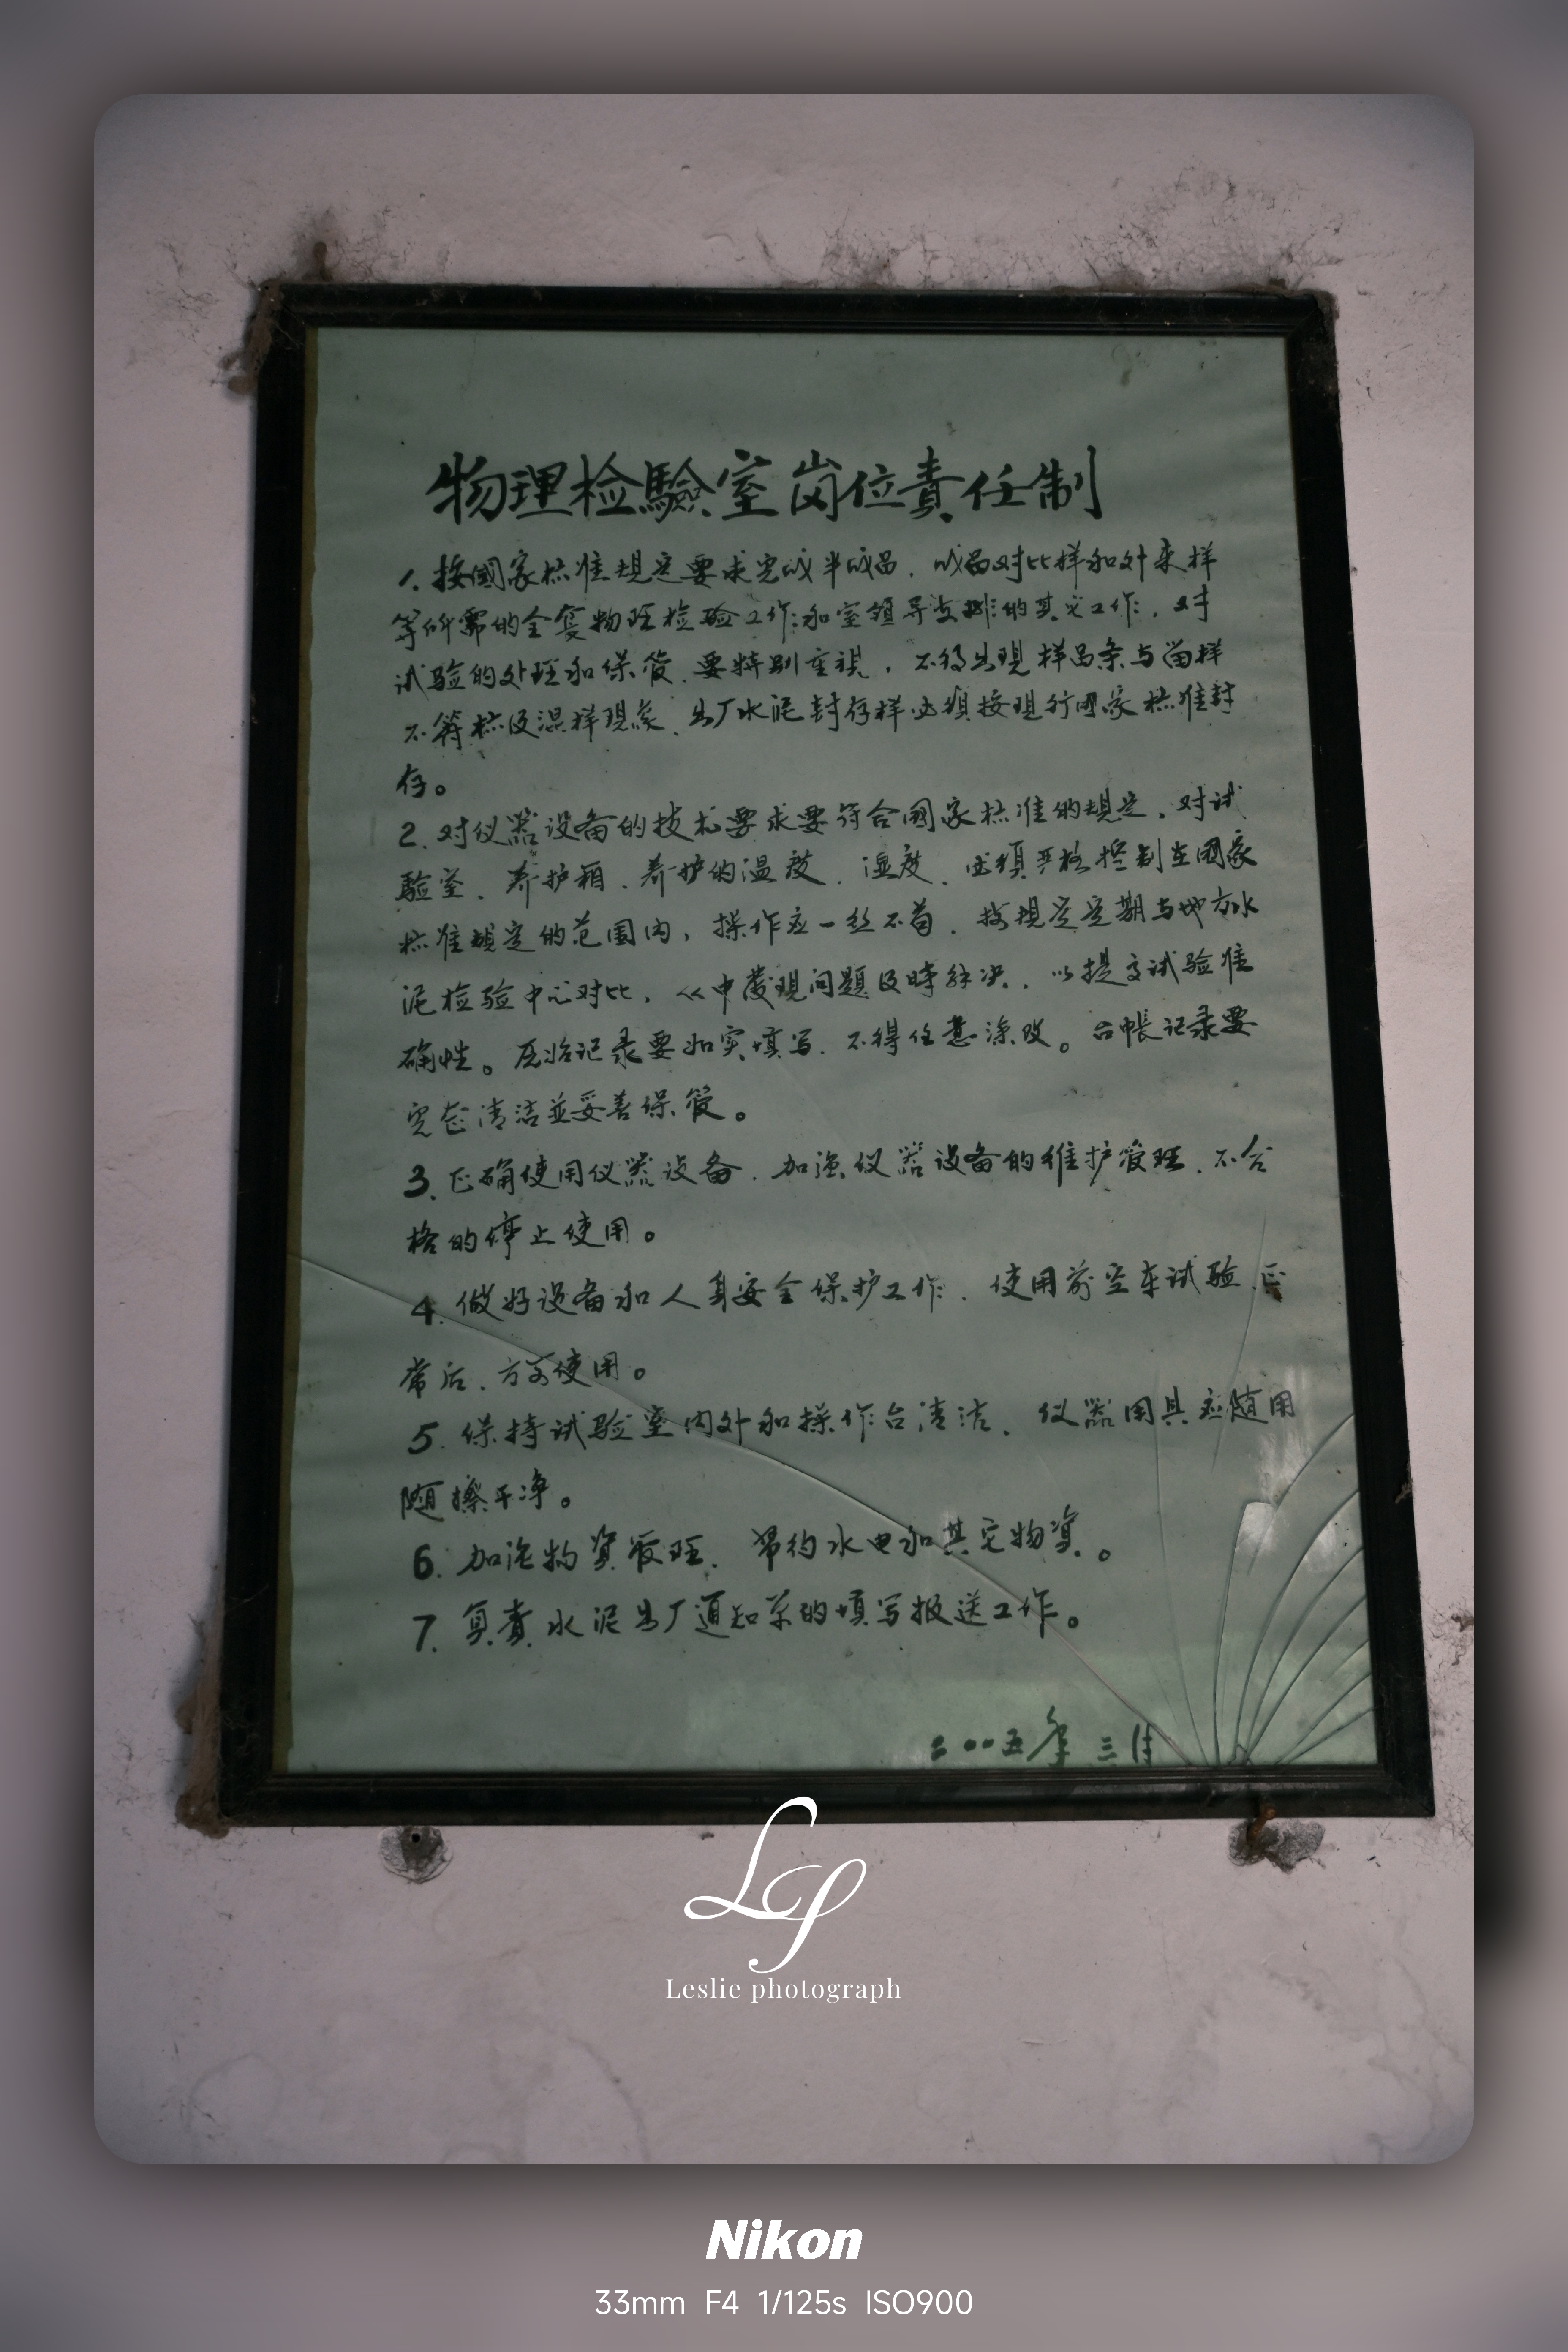 物理检驗室岗位責任制
1.按國家标准规定要求完成半成品，成品对比样和外来样
等所需的全套物理检验工作和室领导安排的其它工作，对
试验的处理和保管，要特别重視，不得出現样品条与留样
不符标及混样現象，出厂水泥封存样必须按现行國家标准封
存。
2.对仪器设备的技术要求要符合國家标准的规定，对试
驗室、养护箱、养护的温度、湿度、必须严格控制在國家
标准规定的范围内，操作应一丝不苟，按规定定期与地方水
泥检验中心对比，从中發現问题及時解决，以提高试验准
确性。原始记录要如实填写，不得任意涂改。台帳记录要
完整清洁並妥善保管。
3.正确使用仪器设备，加强仪器设备的维护管理，不合
格的停止使用。
4.做好设备和人身安全保护工作，使用前空车试验，正
常后，方可使用。
5.保持试验室内外和操作台清洁，仪器用具应随用
随擦干净。
6.加强物資管理，节约水电和其它物資。
7.負責水泥出厂通知单的填写报送工作。
二〇〇五年三月
LP
Leslie photograph
Nikon
33mm F4 1/125s ISO900